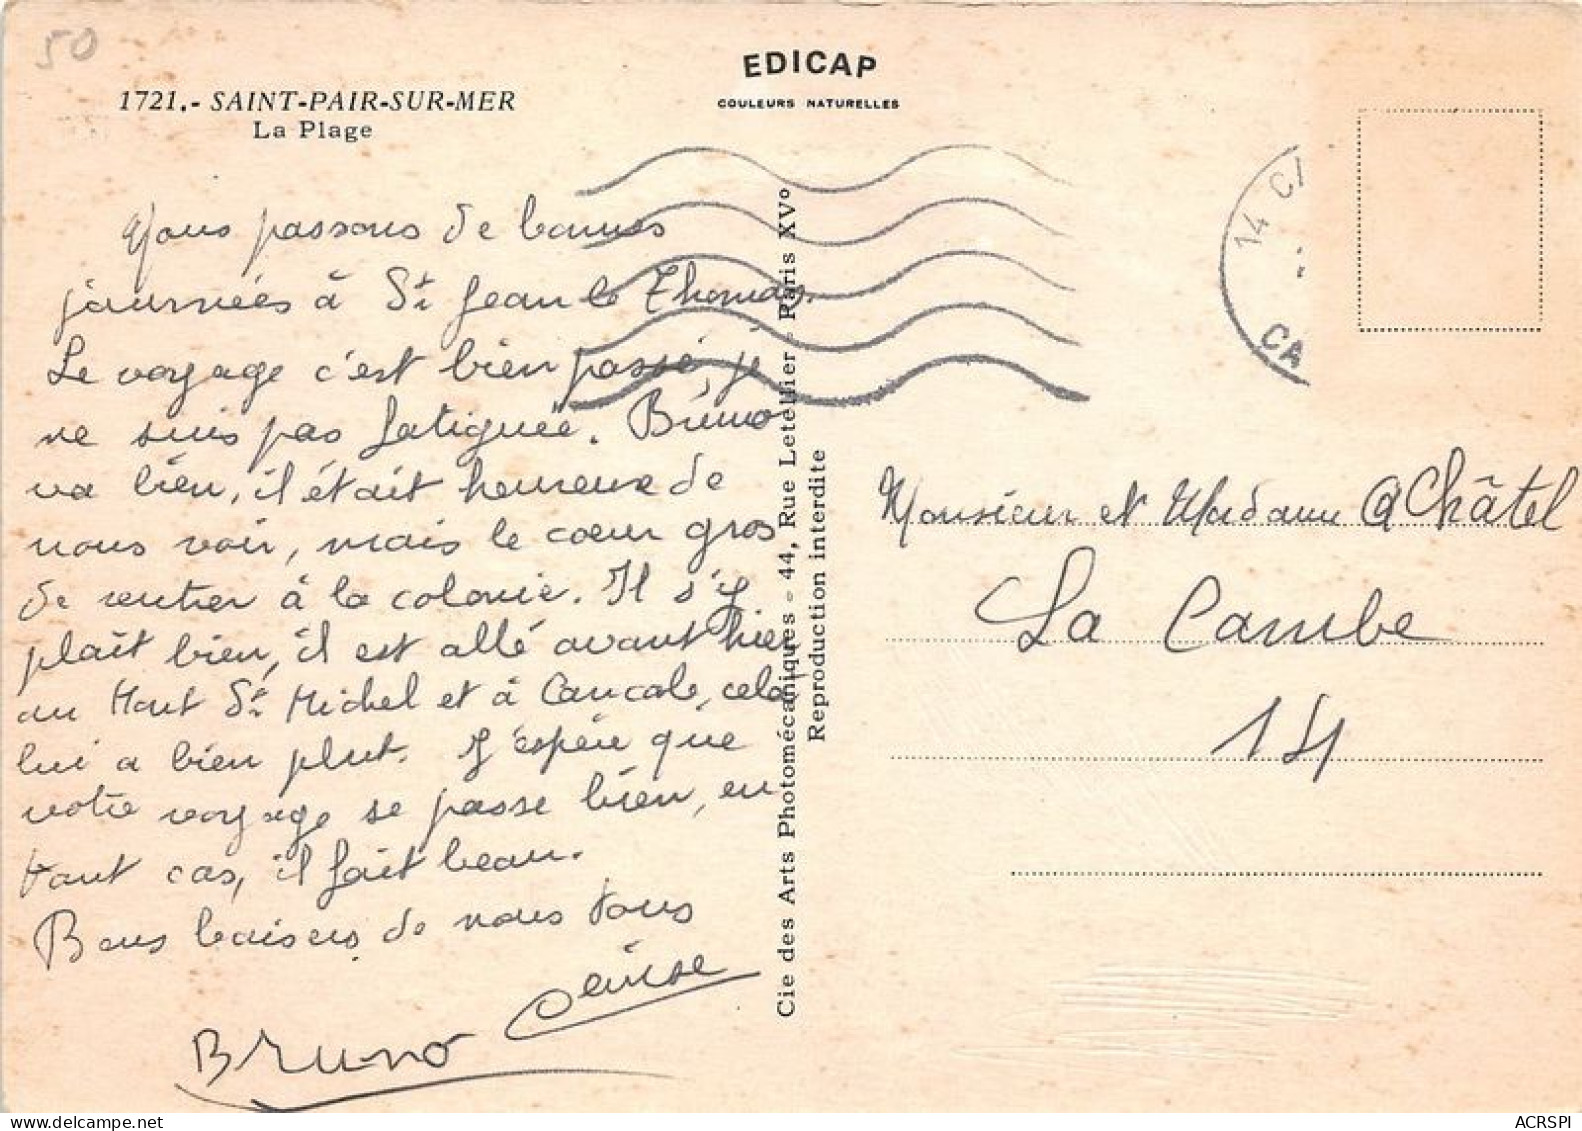 50
EDICAP
COULEURS NATURELLES
1721.- SAINT-PAIR-SUR-MER
La Plage
Nous passons de bonnes
journées à St Jean le Thomas.
Le voyage c'est bien passé, je
ne suis pas fatiguée. Bruno
va bien, il était heureux de
nous voir, mais le coeur gros
de rentrer à la colonie. Il s'y
plait bien, il est allé avant hier
au Mont St Michel et à Cancale, cela
lui a bien plut. J'espère que
votre voyage se passe bien, en
tout cas, il fait beau.
Bons baisers de nous tous
Bruno
Cie des Arts Photomécaniques - 44, Rue Letellier - Paris XVº
Reproduction interdite
14 CA
CA
Monsieur et Madame Châtel
La Cambe
14
ACRSPI